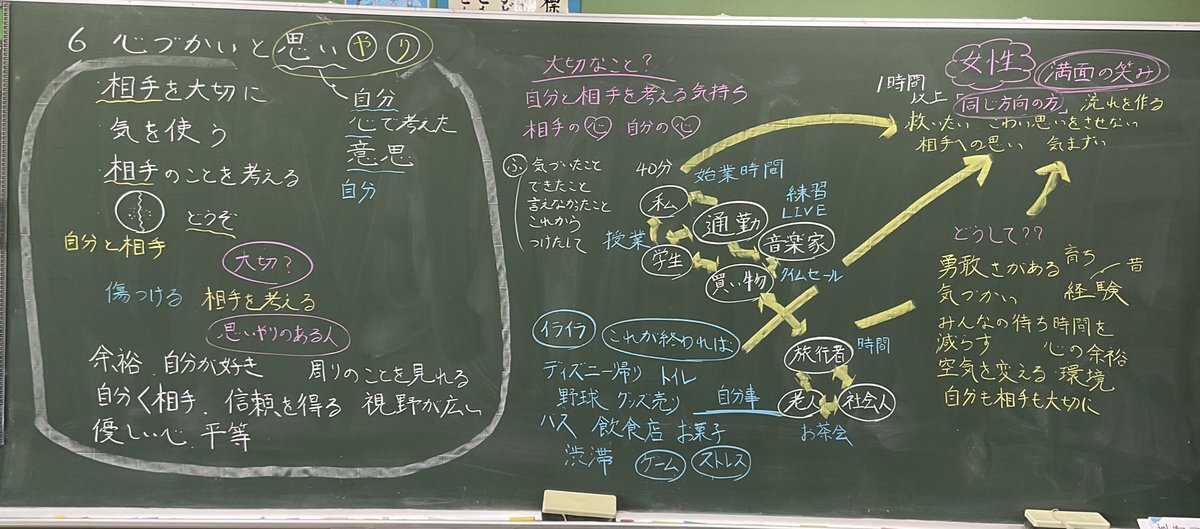 6 心づかいと思いやり
相手を大切に
気を使う
相手のことを考える
どうぞ
自分と相手
自分
心で考えた
意思
自分
大切?
傷つける 相手を考える
思いやりのある人
余裕 自分が好き 周りのことを見れる
自分く相手、信頼を得る 視野が広い
優しい心、平等
大切なこと?
自分と相手を考える気持ち
相手の心 自分の心
ふ
気づいたこと
できたこと
言えなかったこと
これから
つけたして
40分
始業時間
私
通勤
練習
LIVE
音楽家
授業
学生
買い物
タイムセール
旅行者
時間
老人
社会人
お茶会
イライラ
これが終われば
ディズニー帰り トイレ
野球 グッズ売り 自分事
バス 飲食店 お菓子
渋滞 ゲーム ストレス
女性
満面の笑み
1時間
以上
「同じ方向の方」 流れを作る
救いたい こわい思いをさせない
相手への思い 気まずい
どうして??
勇敢さがある 育ち
気づかい 経験 昔
みんなの待ち時間を
減らす 心の余裕
空気を変える 環境
自分も相手も大切に